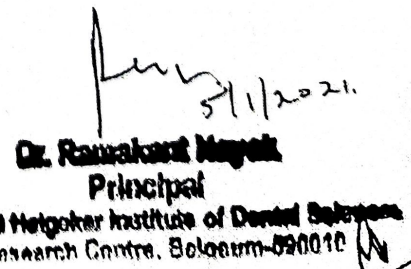 5/1/2021.
Dr. Ramakant Nayak
Principal
Institute of Dental Sciences
Research Centre, Belgaum-590010